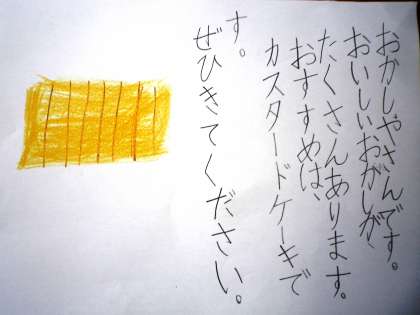 おかしやさんです。
おいしいおかしが、
たくさんあります。
おすすめは、
カスタードケーキで
す。
ぜひきてください。